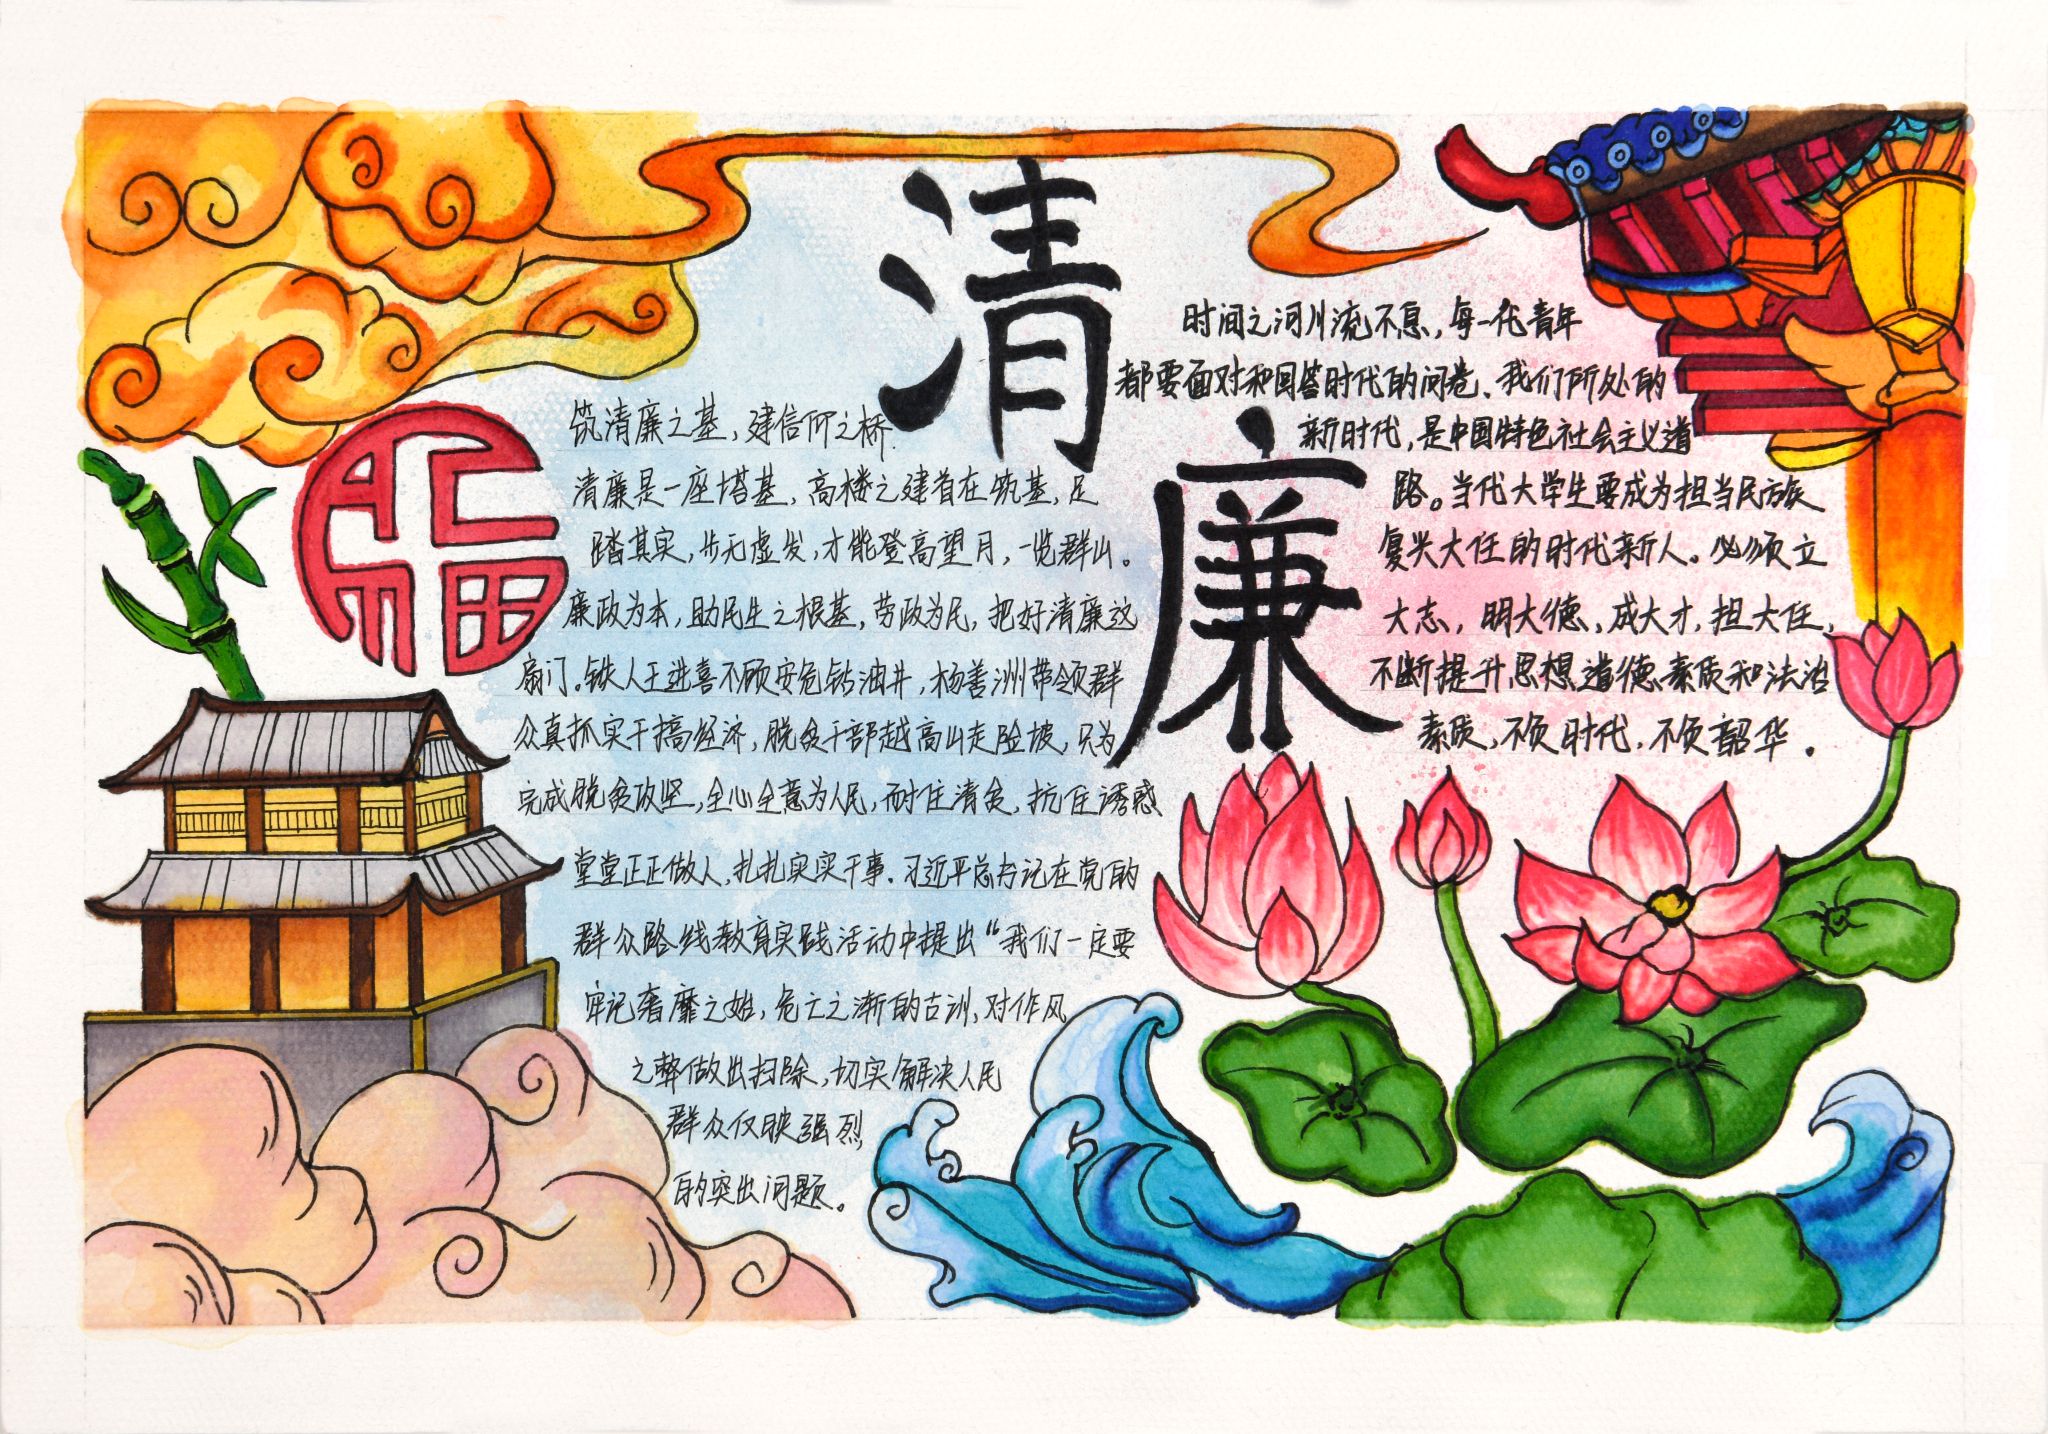 清廉
福
筑清廉之基，建信仰之桥
清廉是一座塔基，高楼之建首在筑基，足
踏其实，步无虚发，才能登高望月，一览群山。
廉政为本，助民生之根基，劳政为民，把好清廉这
扇门。铁人王进喜不顾安危钻油井，杨善洲带领群
众真抓实干搞经济，脱贫干部越高山走险坡，只为
完成脱贫攻坚，全心全意为人民，耐住清贫，抗住诱惑
堂堂正正做人，扎扎实实干事。习近平总书记在党的
群众路线教育实践活动中提出“我们一定要
牢记奢靡之始，危亡之渐的古训，对作风
之弊做出扫除，切实解决人民
群众仅映强烈
的突出问题。
时间之河川流不息，每一代青年
都要面对和回答时代的问卷、我们所处的
新时代，是中国特色社会主义道
路。当代大学生要成为担当民族
复兴大任的时代新人。必须立
大志，明大德，成大才，担大任，
不断提升思想道德素质和法治
素质，不负时代，不负韶华．